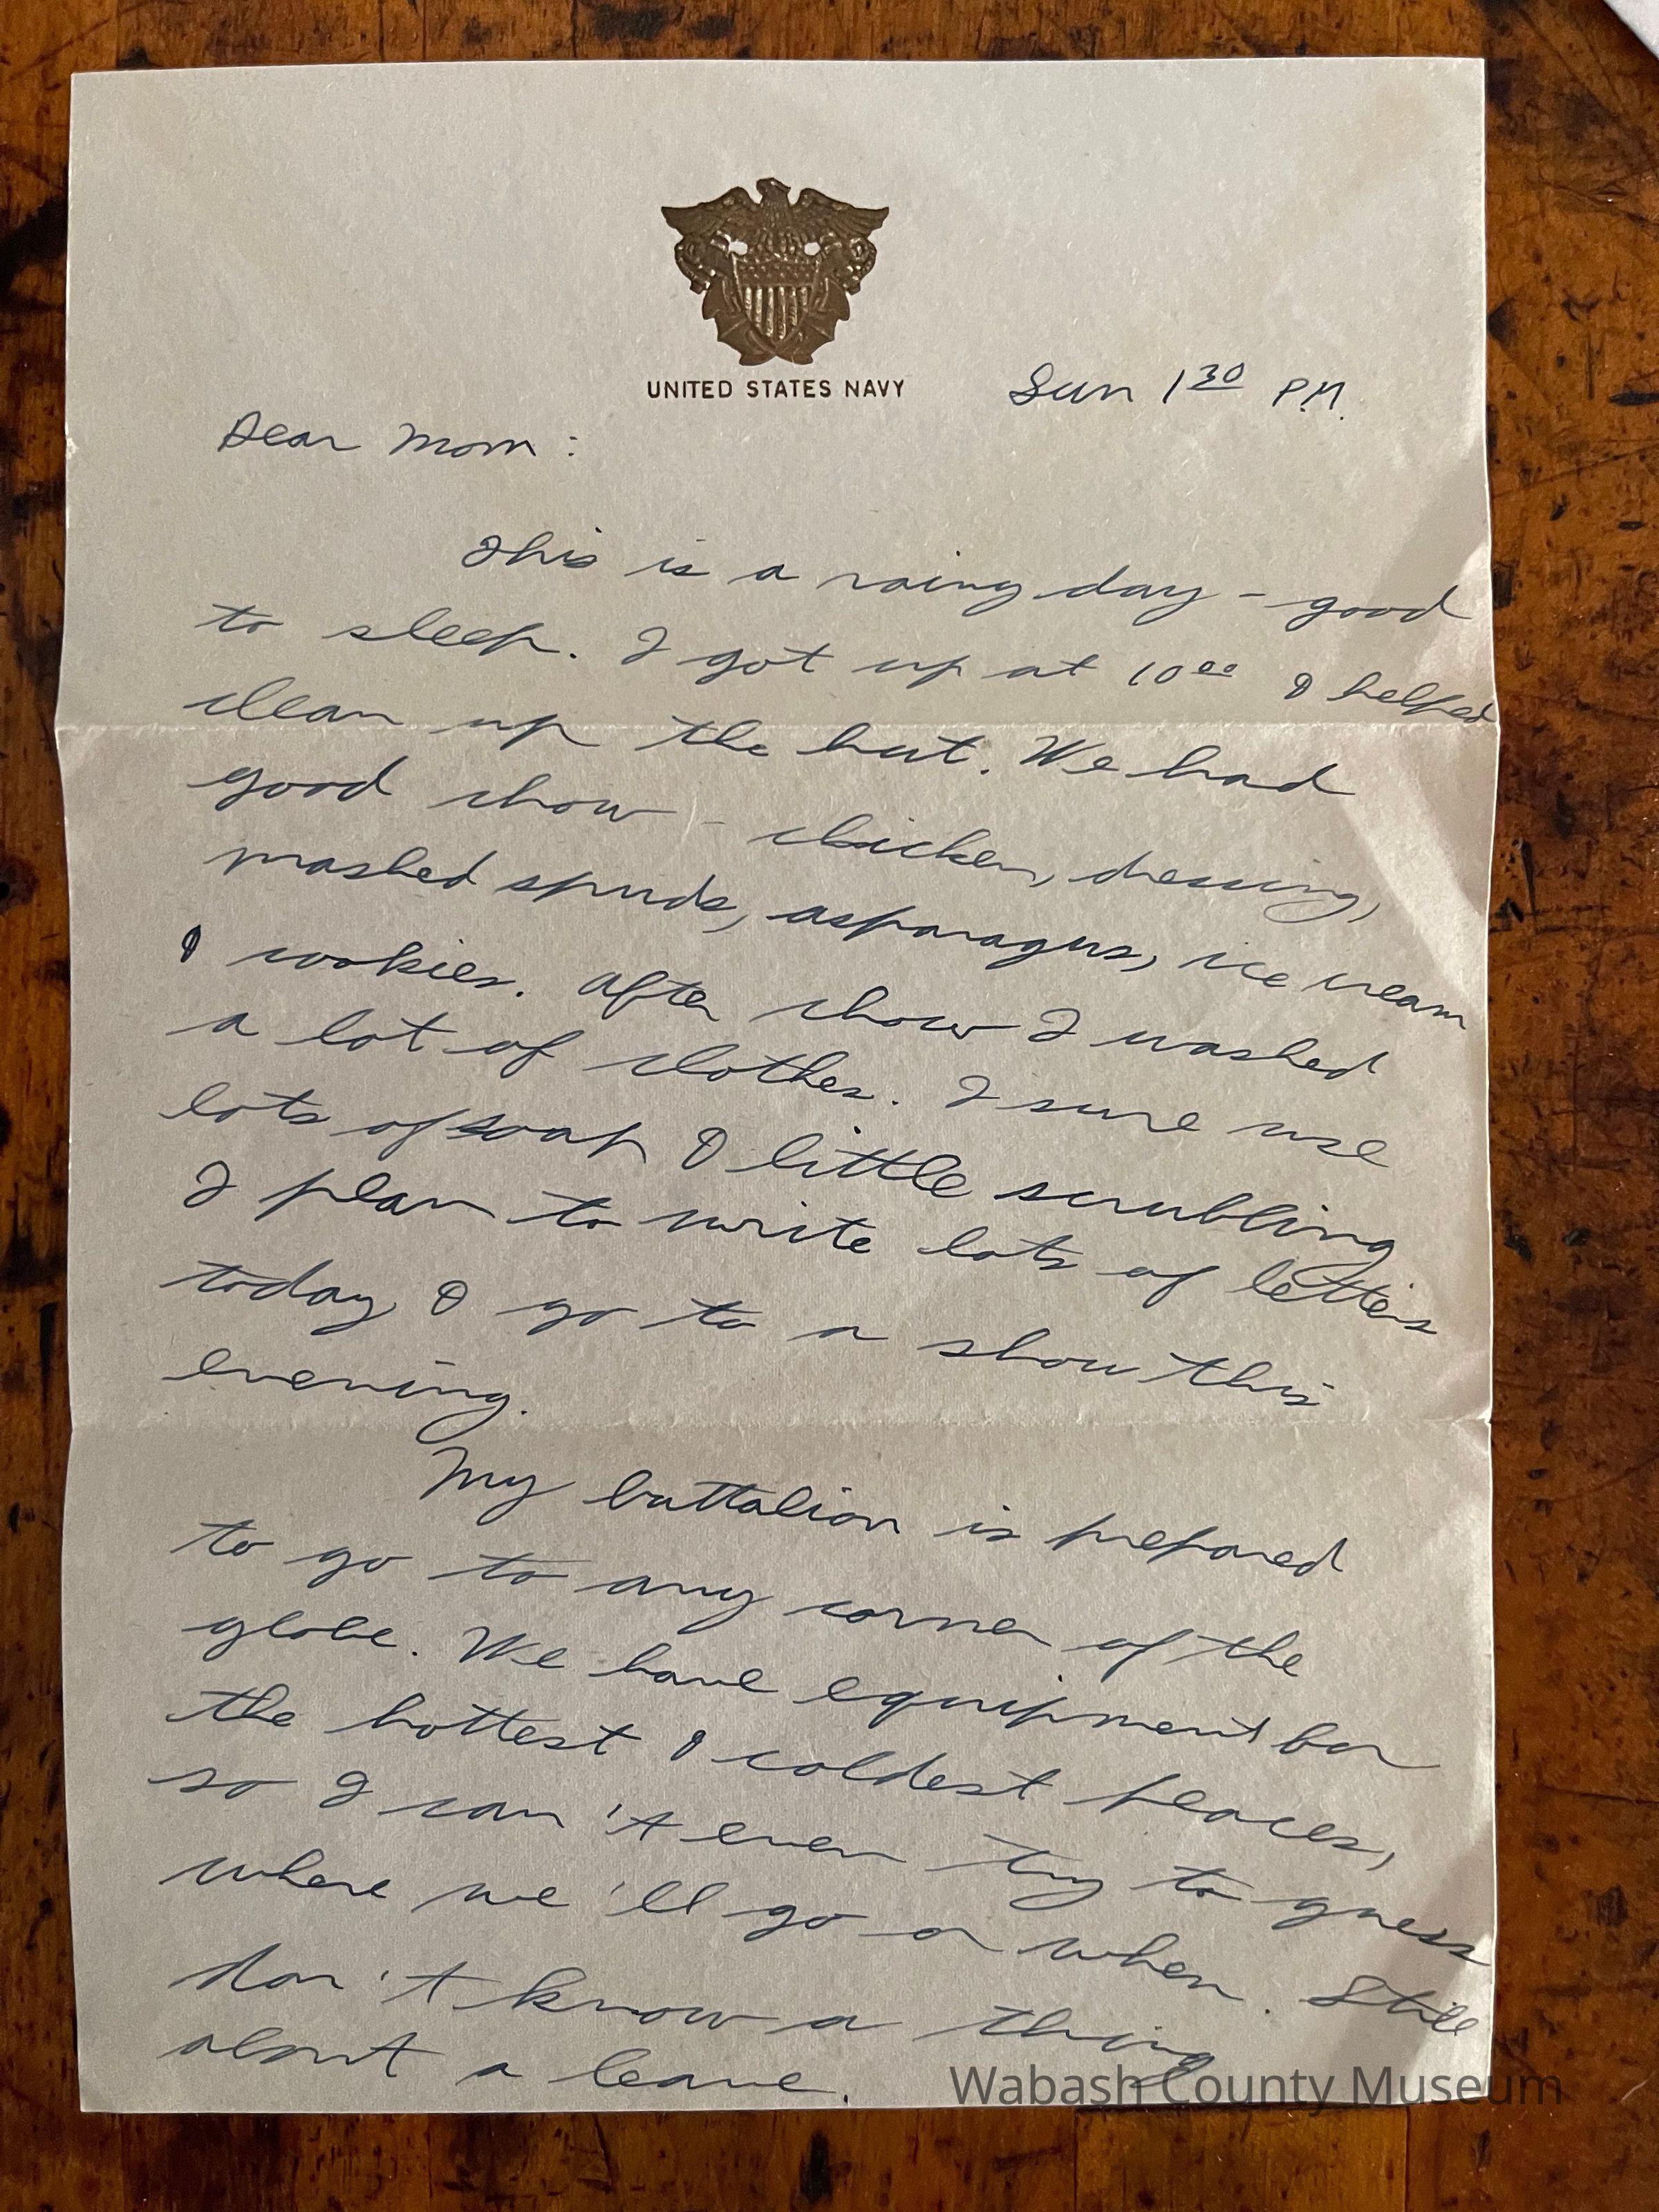 UNITED STATES NAVY
Sun 1³⁰ P.M.
Dear Mom:
This is a rainy day - good
to sleep. I got up at 10⁰⁰ & helped
clean up the hut. We had
good chow - chicken, dressing,
mashed spuds, asparagus, ice cream
& cookies. After chow I washed
a lot of clothes. I sure use
lots of soap & little scrubling
I plan to write lots of letters
today & go to a show this
evening.
My battalion is prepared
to go to any corner of the
globe. We have equipment for
the hottest & coldest places,
so I can't even try to guess
where we'll go or when. Still
don't know a thing
about a leave.
Wabash County Museum